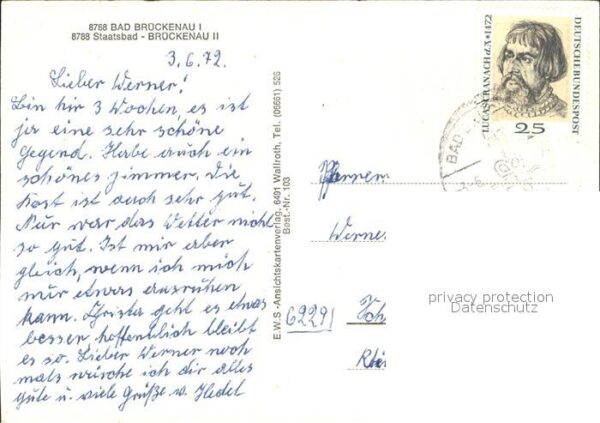 8788 BAD BRÜCKENAU I
8788 Staatsbad - BRÜCKENAU II
3.6.72.
Lieber Werner!
Bin hir 3 Wochen, es ist
ja eine sehr schöne
Gegend. Habe auch ein
schönes Zimmer. Die
Kost ist auch sehr gut.
Nur war das Wetter nicht
so gut. Ist mir aber
gleich, wenn ich mich
nur etwas ausruhen
kann. Christa geht es etwas
besser, hoffentlich bleibt
es so. Lieber Werner noch
mals wüsche ich dir alles
gute u. viele Grüße v. Hedel
E.W.S-Ansichtskartenverlag, 6491 Wallroth, Tel. (06661) 526
Best.-Nr. 103
LUCAS CRANACH d.Ä. 1472
DEUTSCHE BUNDESPOST
25
BAD
Werne
6229
privacy protection
Datenschutz